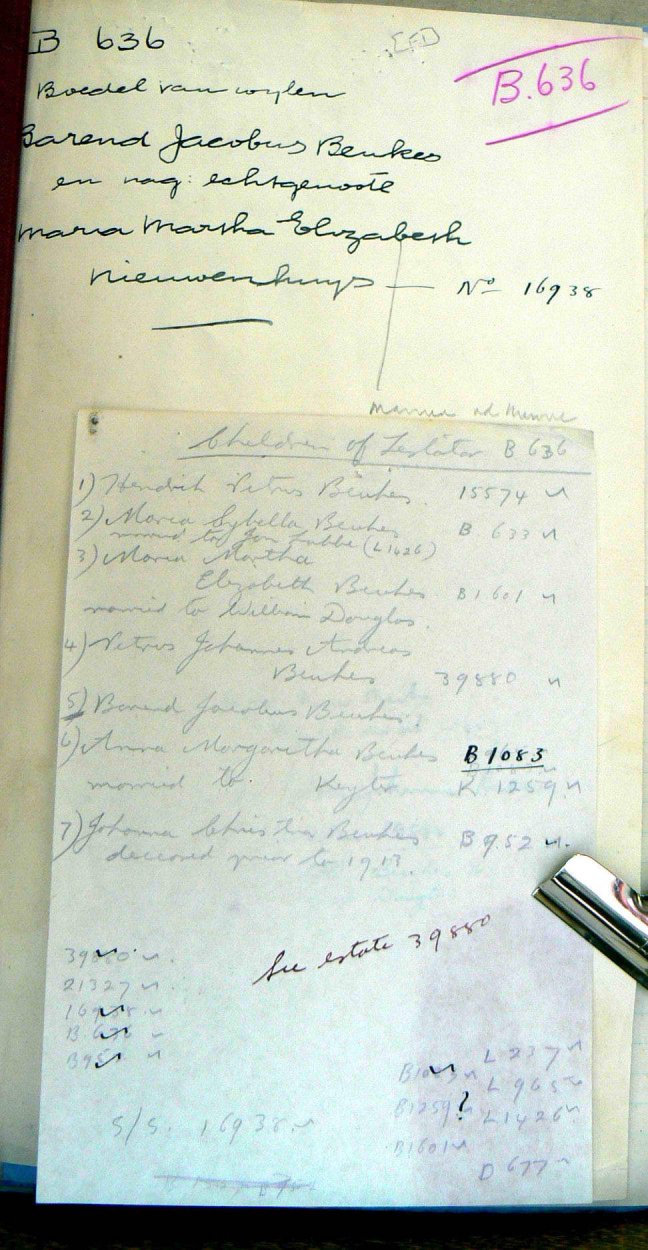 B 636
B.636
Boedel van wylen
Barend Jacobus Beukes
en nag: echtgenoote
Maria Martha Elizabeth
Nieuwenhuys — No 16938
Children of Testator B 636
1) Hendrik Petrus Beukes. 15574
2) Maria Sybella Beukes B. 633
married to Jan Lubbe (L1426)
3) Maria Martha
Elizabeth Beukes B1601
married to William Douglas.
4) Petrus Johannes Andreas
Beukes 39880
5) Barend Jacobus Beukes
6) Anna Margaretha Beukes B1083
married to Keyter K 1259
7) Johanna Christina Beukes B952
deceased prior to 1913
See estate 39880
39880
21327
16938
B 636
B952
B1083 L 237
B1259 ? L 965
L1426
B1601
D 677
S/S. 16938